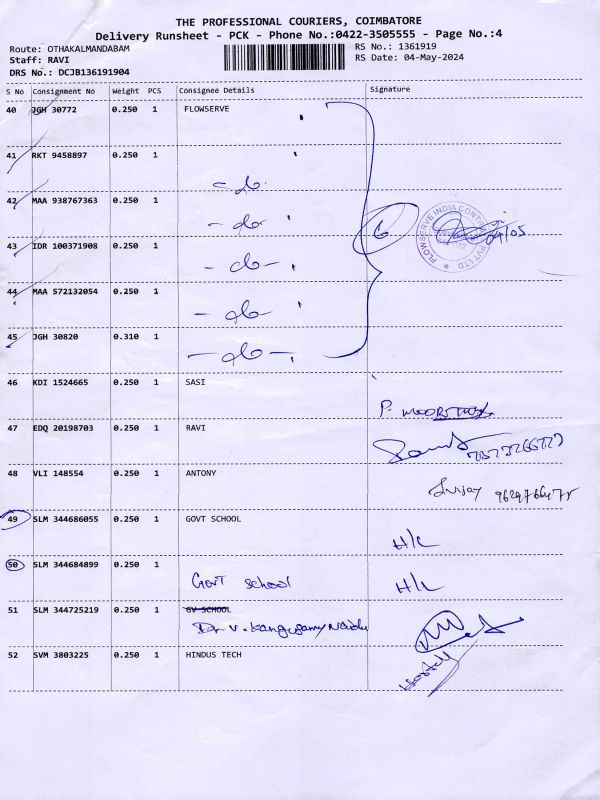 THE PROFESSIONAL COURIERS, COIMBATORE
Delivery Runsheet - PCK - Phone No.:0422-3505555 - Page No.:4
Route: OTHAKALMANDABAM
RS No.: 1361919
Staff: RAVI
RS Date: 04-May-2024
DRS No.: DCJB136191904
S No Consignment No Weight PCS Consignee Details Signature
40 JGH 30772 0.250 1 FLOWSERVE
41 RKT 9458897 0.250 1
- do -
42 MAA 938767363 0.250 1
- do -
6
FLOWSERVE INDIA CONTROLS PVT LTD
04/05
43 IDR 100371908 0.250 1
- do -
44 MAA 572132054 0.250 1
- do -
45 JGH 30820 0.310 1
- do -
46 KDI 1524665 0.250 1 SASI
P. MOORTHY
47 EDQ 20198703 0.250 1 RAVI
48 VLI 148554 0.250 1 ANTONY
49 SLM 344686055 0.250 1 GOVT SCHOOL
H/L
50 SLM 344684899 0.250 1
Govt school H/L
51 SLM 344725219 0.250 1 GV SCHOOL
Dr. V. Rangasamy Naidu
52 SVM 3803225 0.250 1 HINDUS TECH